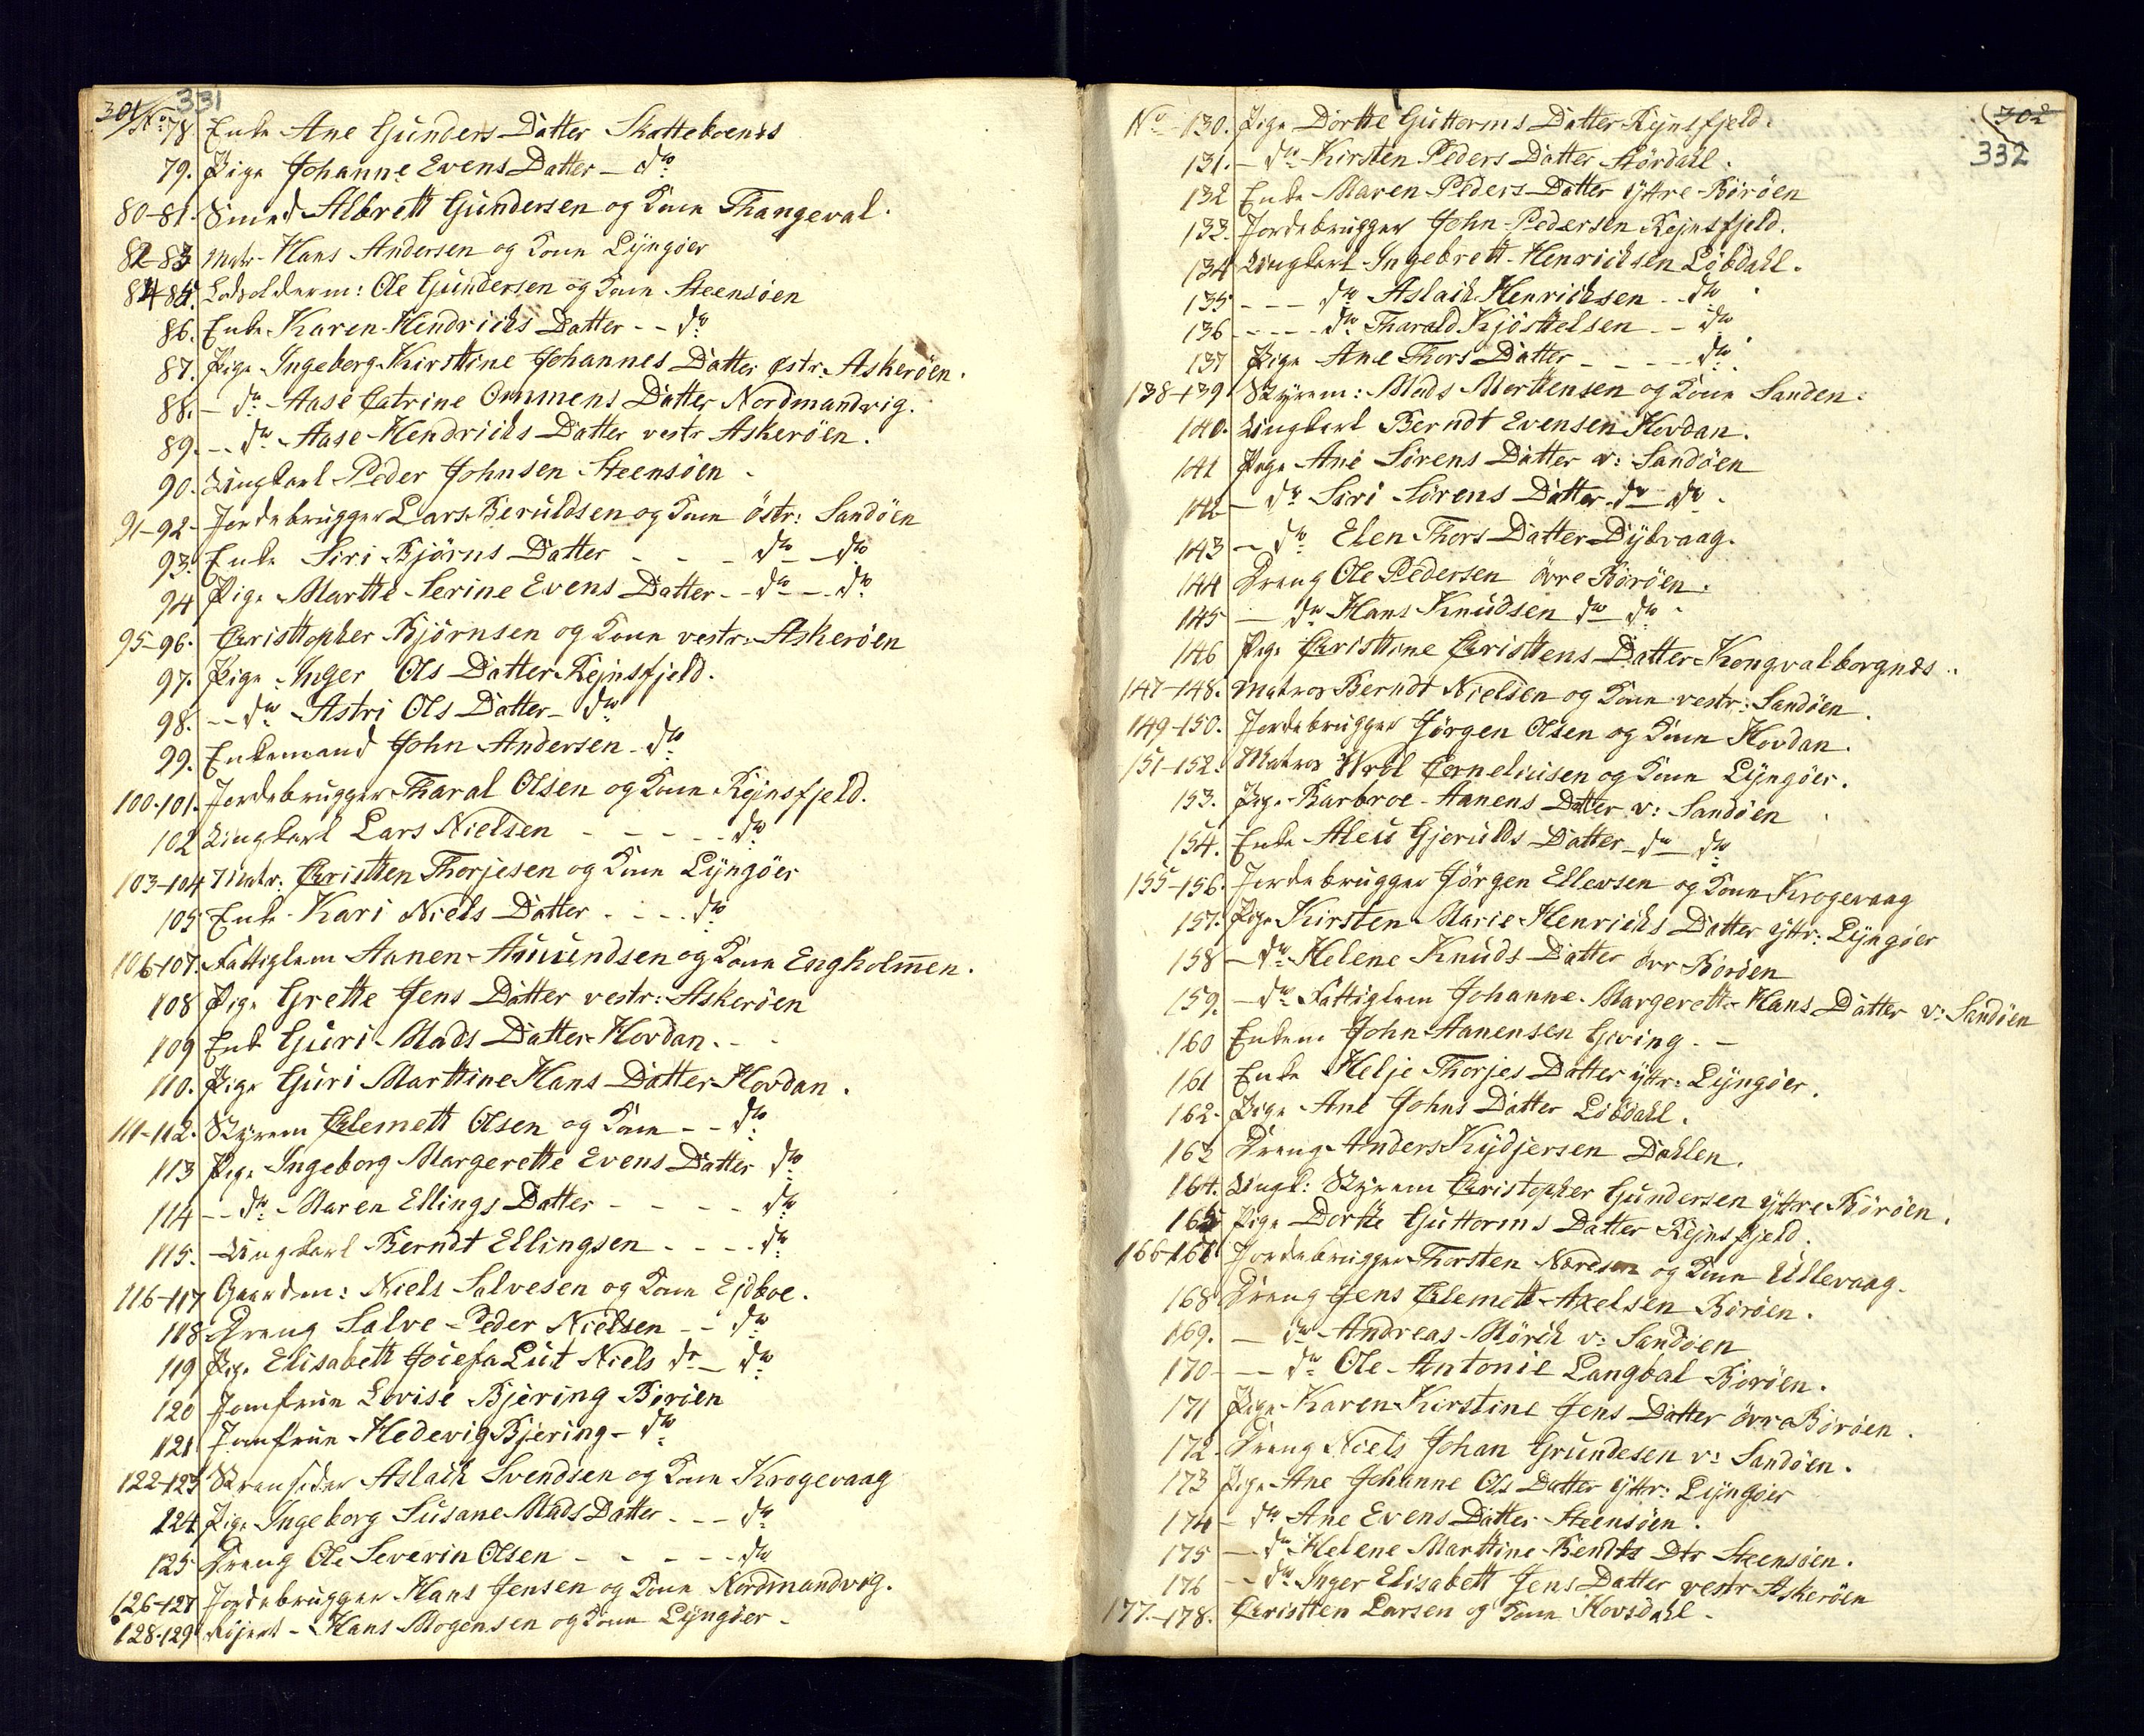 301 331
No: 78. Enke Ane Gunders Datter Skatteboenes
79. Pige Johanne Evens Datter – do
80-81. Smed Albrett Gundersen og Kone Thangeval.
82-83 Matr. Hans Andersen og Kone Lÿngöer
84-85. Lodsolderm: Ole Gundersen og Kone Steensöen
86. Enke Karen Hendrichs Datter - - do
87. Pige Ingeborg Kirstine Johannes Datter østr: Askeröen.
88. – do Aase Catrine Ommens Datter Nordmandvig.
89. -- do Aase Hendrichs Datter vestr Askeröen.
90. Ungkarl Peder Johnsen Steensöen
91-92- Jordebrugger Lars Beruldsen og Kone östr: Sandöen
93. Enke Siri Björns Datter - - - do – do
94 Pige Marthe Serine Evens Datter - - do - - do
95-96. Christtopher Björnsen og Kone vestr: Askeröen
97. Pige Inger Ols Datter Rejnsfjeld.
98. -- do Astri Ols Datter – do
99. Enkemand John Andersen - do
100-101. Jordebrugger Tharal Olsen og Kone Rejnsfjeld.
102 Ungkarl Lars Nielsen - - - - - do
103-104 Matr: Christten Thorjesen og Kone Lÿngöer
105 Enke Kari Niels Datter - - - do
106-107. Fattiglem Aanen Amundsen og Kone Engholmen.
108 Pige Grette Jens Datter vestr: Askeröen
109 Enk Guri Mads Datter Hovdan. -
110. Pige Guri Marttine Hans Datter Hovdan.
111-112. Skÿrem Clemett Olsen og Kone - - do
113 Pige Ingeborg Margerette Evens Datter do
114 -- do Maren Ellings Datter - - - - do
115. Ungkarl Berndt Ellingsen - - - - do
116-117 Gaardm: Niels Salvesen og Kone Ejdboe.
118 Dreng Salve Peder Nielsen - - do
119 Pige Elisabett Josefa Lut Niels dr – do
120 Jomfrue Lovise Bjering Boröen
121 Jomfrue Hedevig Bjering – do
122-123 Stransider Aslach Svendsen og Kone Krogevaag
124 Pige Ingeborg Susane Mads Datter - - - do
125 Dreng Ole Severin Olsen - - - - - do
126-127 Jordebrugger Hans Jensen og Kone Nordmandvig.
128-129 Hans Mogensen og Kone Lÿngöer -
302
332
No 130. Pige Dorthe Guttorms Datter Rejnsfjeld.
131. – do Kirsten Peders Datter Stördahl.
132 Enke Maren Peders Datter ÿttre Böröen
133. Jordebrugger John Pedersen Rejnsfjeld.
134 Ungkarl Ingebrett Henrichsen Löbdahl.
135 - - - do Aslach Henrichsen - - do
136 - - - - do Tharald Kjösttelsen - - do
137 Pige Ane Thors Datter - - - - do
138-139 Skÿrem: Mads Morttensen og Kone Sanden.
140. Ungkarl Berndt Evensen Hovdan.
141 Pige Ane Sörens Datter v: Sandöen
142 – do Siri Sörens Datter do – do
143 – do Elen Thors Datter Dÿbvaag.
144 Dreng Ole Pedersen övre Böröen.
145 – do Hans Knudsen do do
146 Pige Christtine Christtens Datter Kongvalborgnes
147-148. Matros Berndt Nielsen og Kone vestr: Sandöen
149-150. Jordebrugger Jörgen Olsen og Kone Hovdan.
151-152. Matros Wrol Corneliusen og Kone Lÿngöer.
153. Pige Barbroe Aanens Datter v: Sandöen
154. Enke Aleu Gjerulds Datter – do – do
155-156. Jordebrugger Jörgen Ellevsen og Kone Krogevaag
157. Pige Kirsten Marie Henrichs Datter ÿttr: Lÿngöer
158 – do Helene Knuds Datter övr Böröen
159. – do Fattiglem Johanne Margerett Hans Datter v: Sandöen
160 Enkem John Aanensen Gving. –
161 Enke Helje Thorjes Datter ÿttr: Lÿngöer.
162. Pige Ane Johns Datter Löbdahl.
163 Dreng Anders Kÿdjersen Dahlen.
164. Ungk: Skÿrem Christopher Gundersen ÿttre Böröen.
165 Pige Dorthe Guttorms Datter Rejnsfjeld.
166-167 Jordebrugger Thorsten Næresen og Kone Ullevaag.
168 Dreng Jens Clemett Axelsen Böröen.
169. – do Andreas Mörch v: Sandöen
170 -- do Ole Antonie Langbal Böröen.
171 Pige Karen Kirstine Jens Datter övre Böröen.
172 Dreng Niels Johan Grundesen v: Sandöen.
173 Pige Ane Johanne Ols Datter ÿttr: Lÿngöer
174 – do Ane Evens Datter Steensöen.
175 – do Helene Marttine Bendts Dtr Steensöen.
176 -- do Inger Elisabett Jens Datter vestr Askeröen
177-178. Christten Larsen og Kone Hovsdahl -